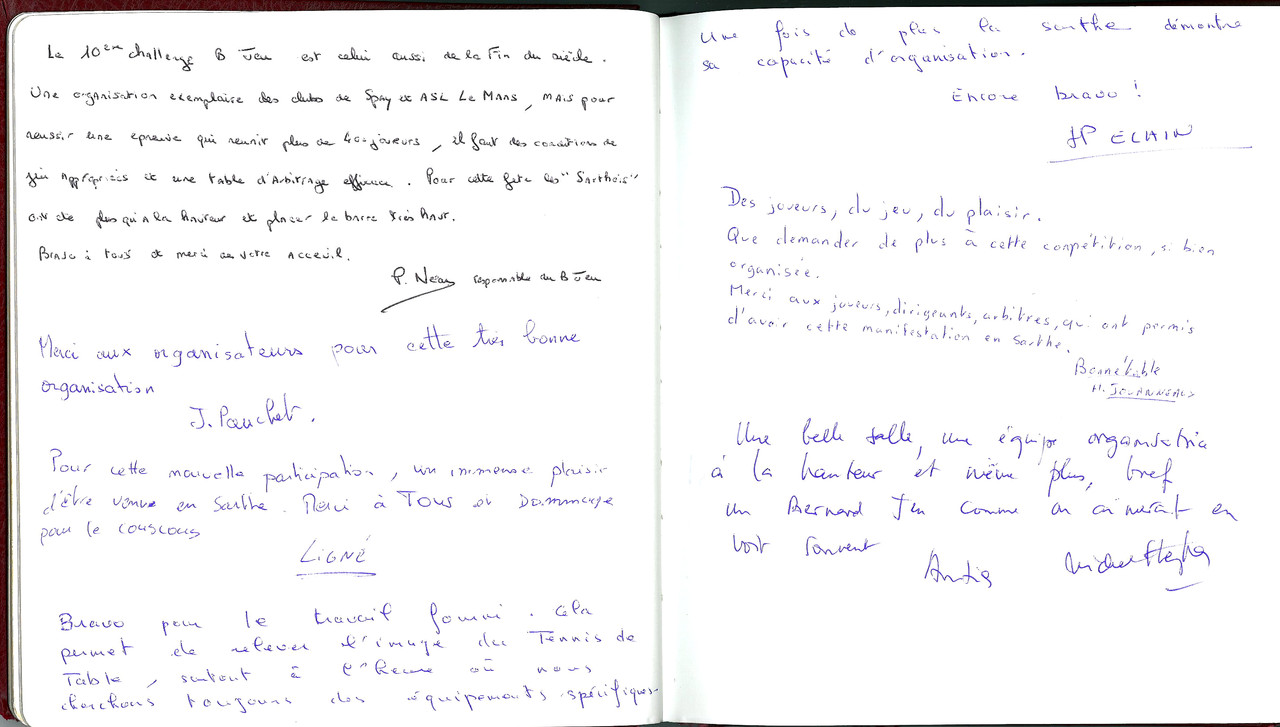 Le 10ème challenge B Jeu est celui aussi de la Fin du siècle.
Une organisation exemplaire des clubs de Spay et ASL Le Mans, mais pour
reussir une epreuve qui reunit plus de 400 joueurs, il faut des conditions de
jeu appropriés et une table d'Arbitrage efficace. Pour cette fete les "Sarthois"
ont été plus qu'à la hauteur et placer la barre très haut.
Bravo à tous et merci de votre acceuil.
P. Neau responsable du B Jeu
Merci aux organisateurs pour cette très bonne
organisation
J. Pauchet.
Pour cette nouvelle participation, un immense plaisir
d'être venue en Sarthe. Merci à Tous et Dommage
pour le couscous
LIGNÉ
Bravo pour le travail fourni. Cela
permet de relever l'image du Tennis de
Table, surtout à l'heure où nous
cherchons toujours des équipements spécifiques.
Une fois de plus la sarthe démontre
sa capacité d'organisation.
Encore bravo !
JP ECHAIN
Des joueurs, du jeu, du plaisir.
Que demander de plus à cette compétition, si bien
organisée.
Merci aux joueurs, dirigeants, arbitres, qui ont permis
d'avoir cette manifestation en Sarthe.
Bonnétable
H. JOUANNEAU
Une belle salle, une équipe organisatrice
à la hauteur et même plus, bref
un Bernard Jeu comme on aimerait en
voir souvent
Michel